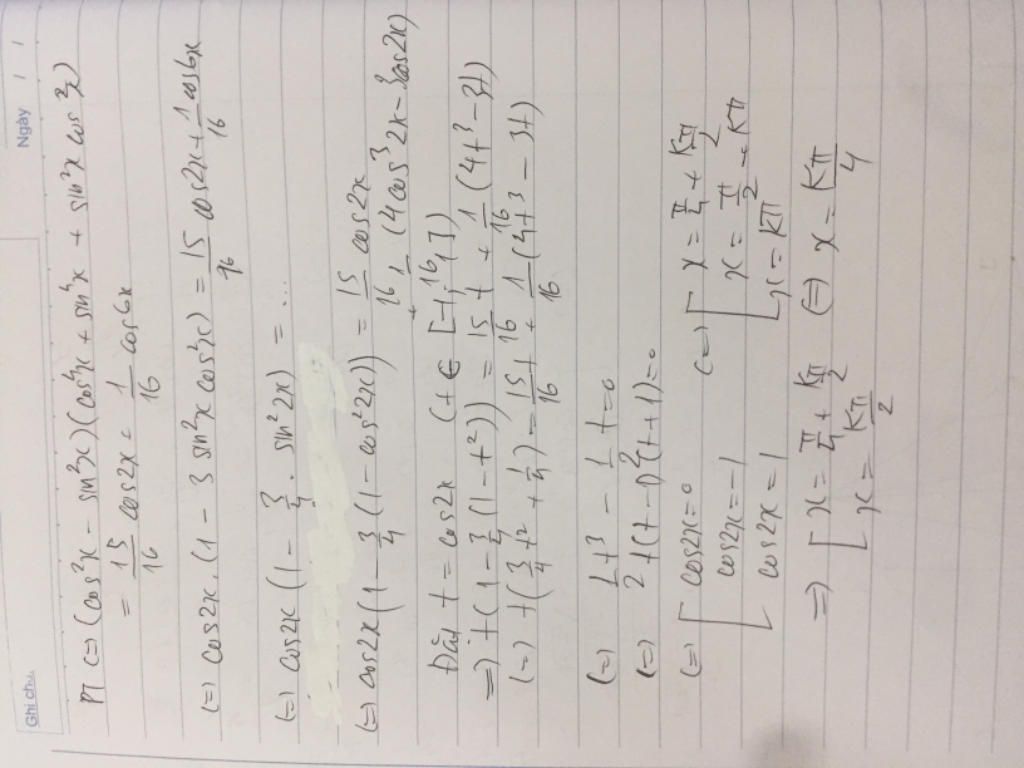 Ngày
Ghi chú
PT (=) (cos²x - sin²x)(cos⁴x + sin⁴x + sin²x cos²x)
= 15/16 cos2x = 1/16 cos6x
(=) cos2x.(1 - 3 sin²x cos²x) = 15/96 cos2x + 1/16 cos6x
(=) cos2x (1 - 3/4 . sin²2x) = ...
(=) cos2x (1 - 3/4 (1 - cos²2x)) = 15/16 cos2x
+ 1/16 (4cos³2x - 3cos2x)
Đặt t = cos2x (t ∈ [-1; 1])
=) t(1 - 3/4 (1 - t²)) = 15/16 t + 1/16 (4t³ - 3t)
(=) t(3/4 t² + 1/4) = 15/16 t + 1/16 (4t³ - 3t)
(=) 1/2 t³ - 1/2 t = 0
(=) t(t - 1)(t + 1) = 0
(=) [ cos2x = 0 (=) [ x = π/4 + Kπ/2
cos2x = -1 x = π/2 + Kπ
cos2x = 1 x = Kπ
=) [ x = π/4 + Kπ/2 (=) x = Kπ/4
x = Kπ/2